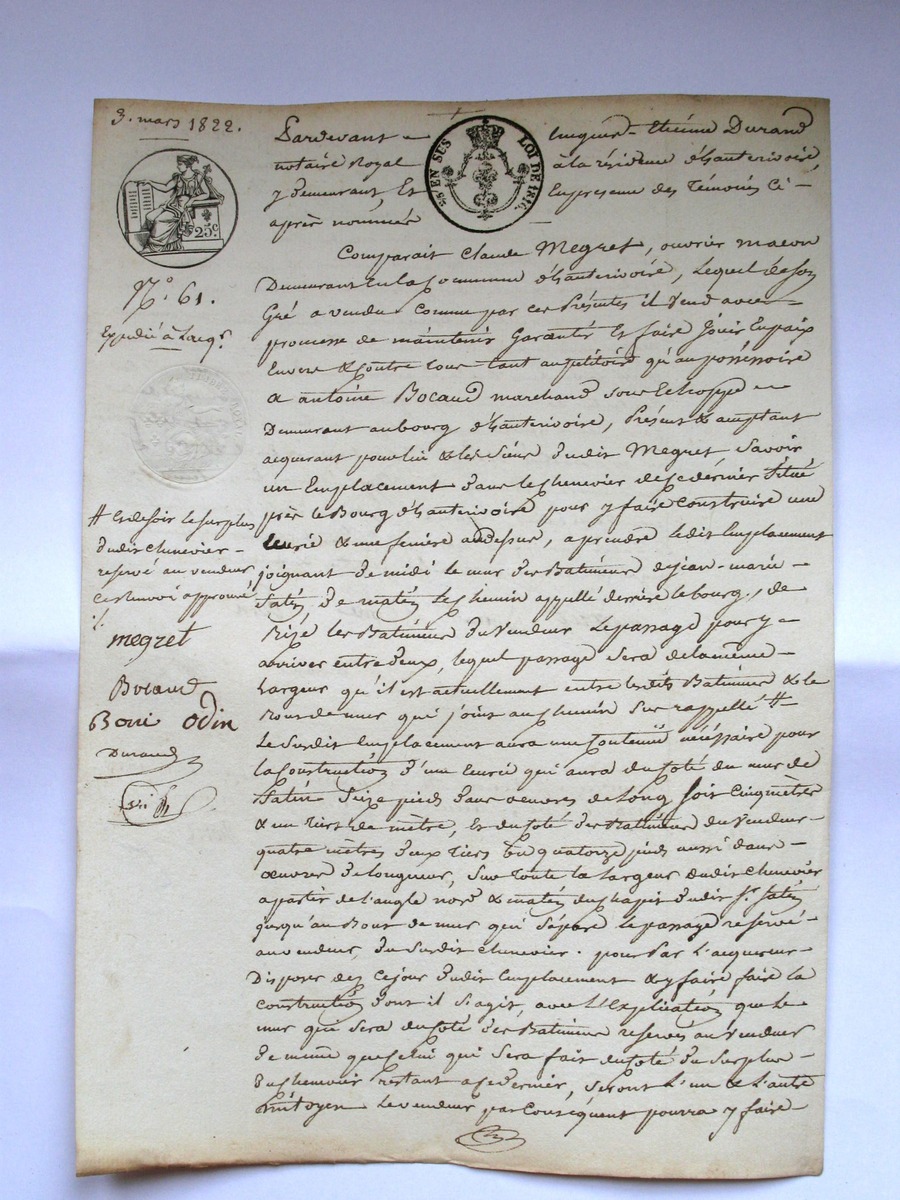 3. mars 1822.
Pardevant
Etienne Durand
notaire Royal
à la résidence d'hauterivoire,
y demeurant, Et
En presence des Témoins Ci-
après nommés
EN SUS
LOI DE 1816.
25c
N.° 61.
Expedié à l'acq.r
Comparait Claude Megret, ouvrier macon
Demeurant en la Commune d'hauterivoire, Lequel de son
Gré a vendu Comme par ces Présentes il vend avec
promesse de maintenir Garantir Et faire Jouir En paix
Envers & Contre tous tant au petitoire qu'au possessoire
a antoine Bocaud marchand sous Echoppe
Demeurant au bourg d'hauterivoire, Présent & acceptant
acquerant pour lui & les Siens dudit Megret Savoir
un Emplacement dans le chenevier de ce dernier Situé
près le Bourg d'hauterivoire pour y faire Construire une
Ecurie & une feniere au dessus, a prendre ledit Emplacement
joignant de midi le mur des Batiments de jean-marie
Satin, de matin le chemin appellé derrière le bourg, de
Bize les Batiments du vendeur Le passage pour y
arriver entre deux, lequel passage sera de la même
Largeur qu'il est actuellement entre lesdits Batiments & le
Bout de mur qui joint au chemin sus rappellé #
Le Susdit Emplacement aura une Contenue nécéssaire pour
la Construction d'une Ecurie qui aura du Coté du mur de
Satin Seize pieds dans oeuvres de Long Soit Cinq mètres
& un tiers de mètre, Et du Coté des Batiments du vendeur
quatre mètres deux tiers ou quatorze pieds aussi dans
oeuvre de Longueur, Sur Toute la largeur dudit chenevier
a partir de l'angle nord & matin du chapit dudit Sr. Satin
jusqu'au Bout de mur qui Sépare le passage reservé
au vendeur, du Susdit chenevier. pour Par L'acquereur
Disposer dez Ce jour dudit Emplacement & y faire faire la
Construction dont il s'agit, avec L'Explication que le
mur qui Sera du Coté des Batiments reservés au vendeur
de même que Celui qui Sera fait du Coté du Surplus
du chenevier restant a Ce dernier, Seront L'un & L'autre
mitoyen Le vendeur par Conséquent pourra y faire
# Et de soir le surplus
dudit chenevier
reservé au vendeur
Ce renvoi approuvé
megret
Bocaud
Bori odin
Durand